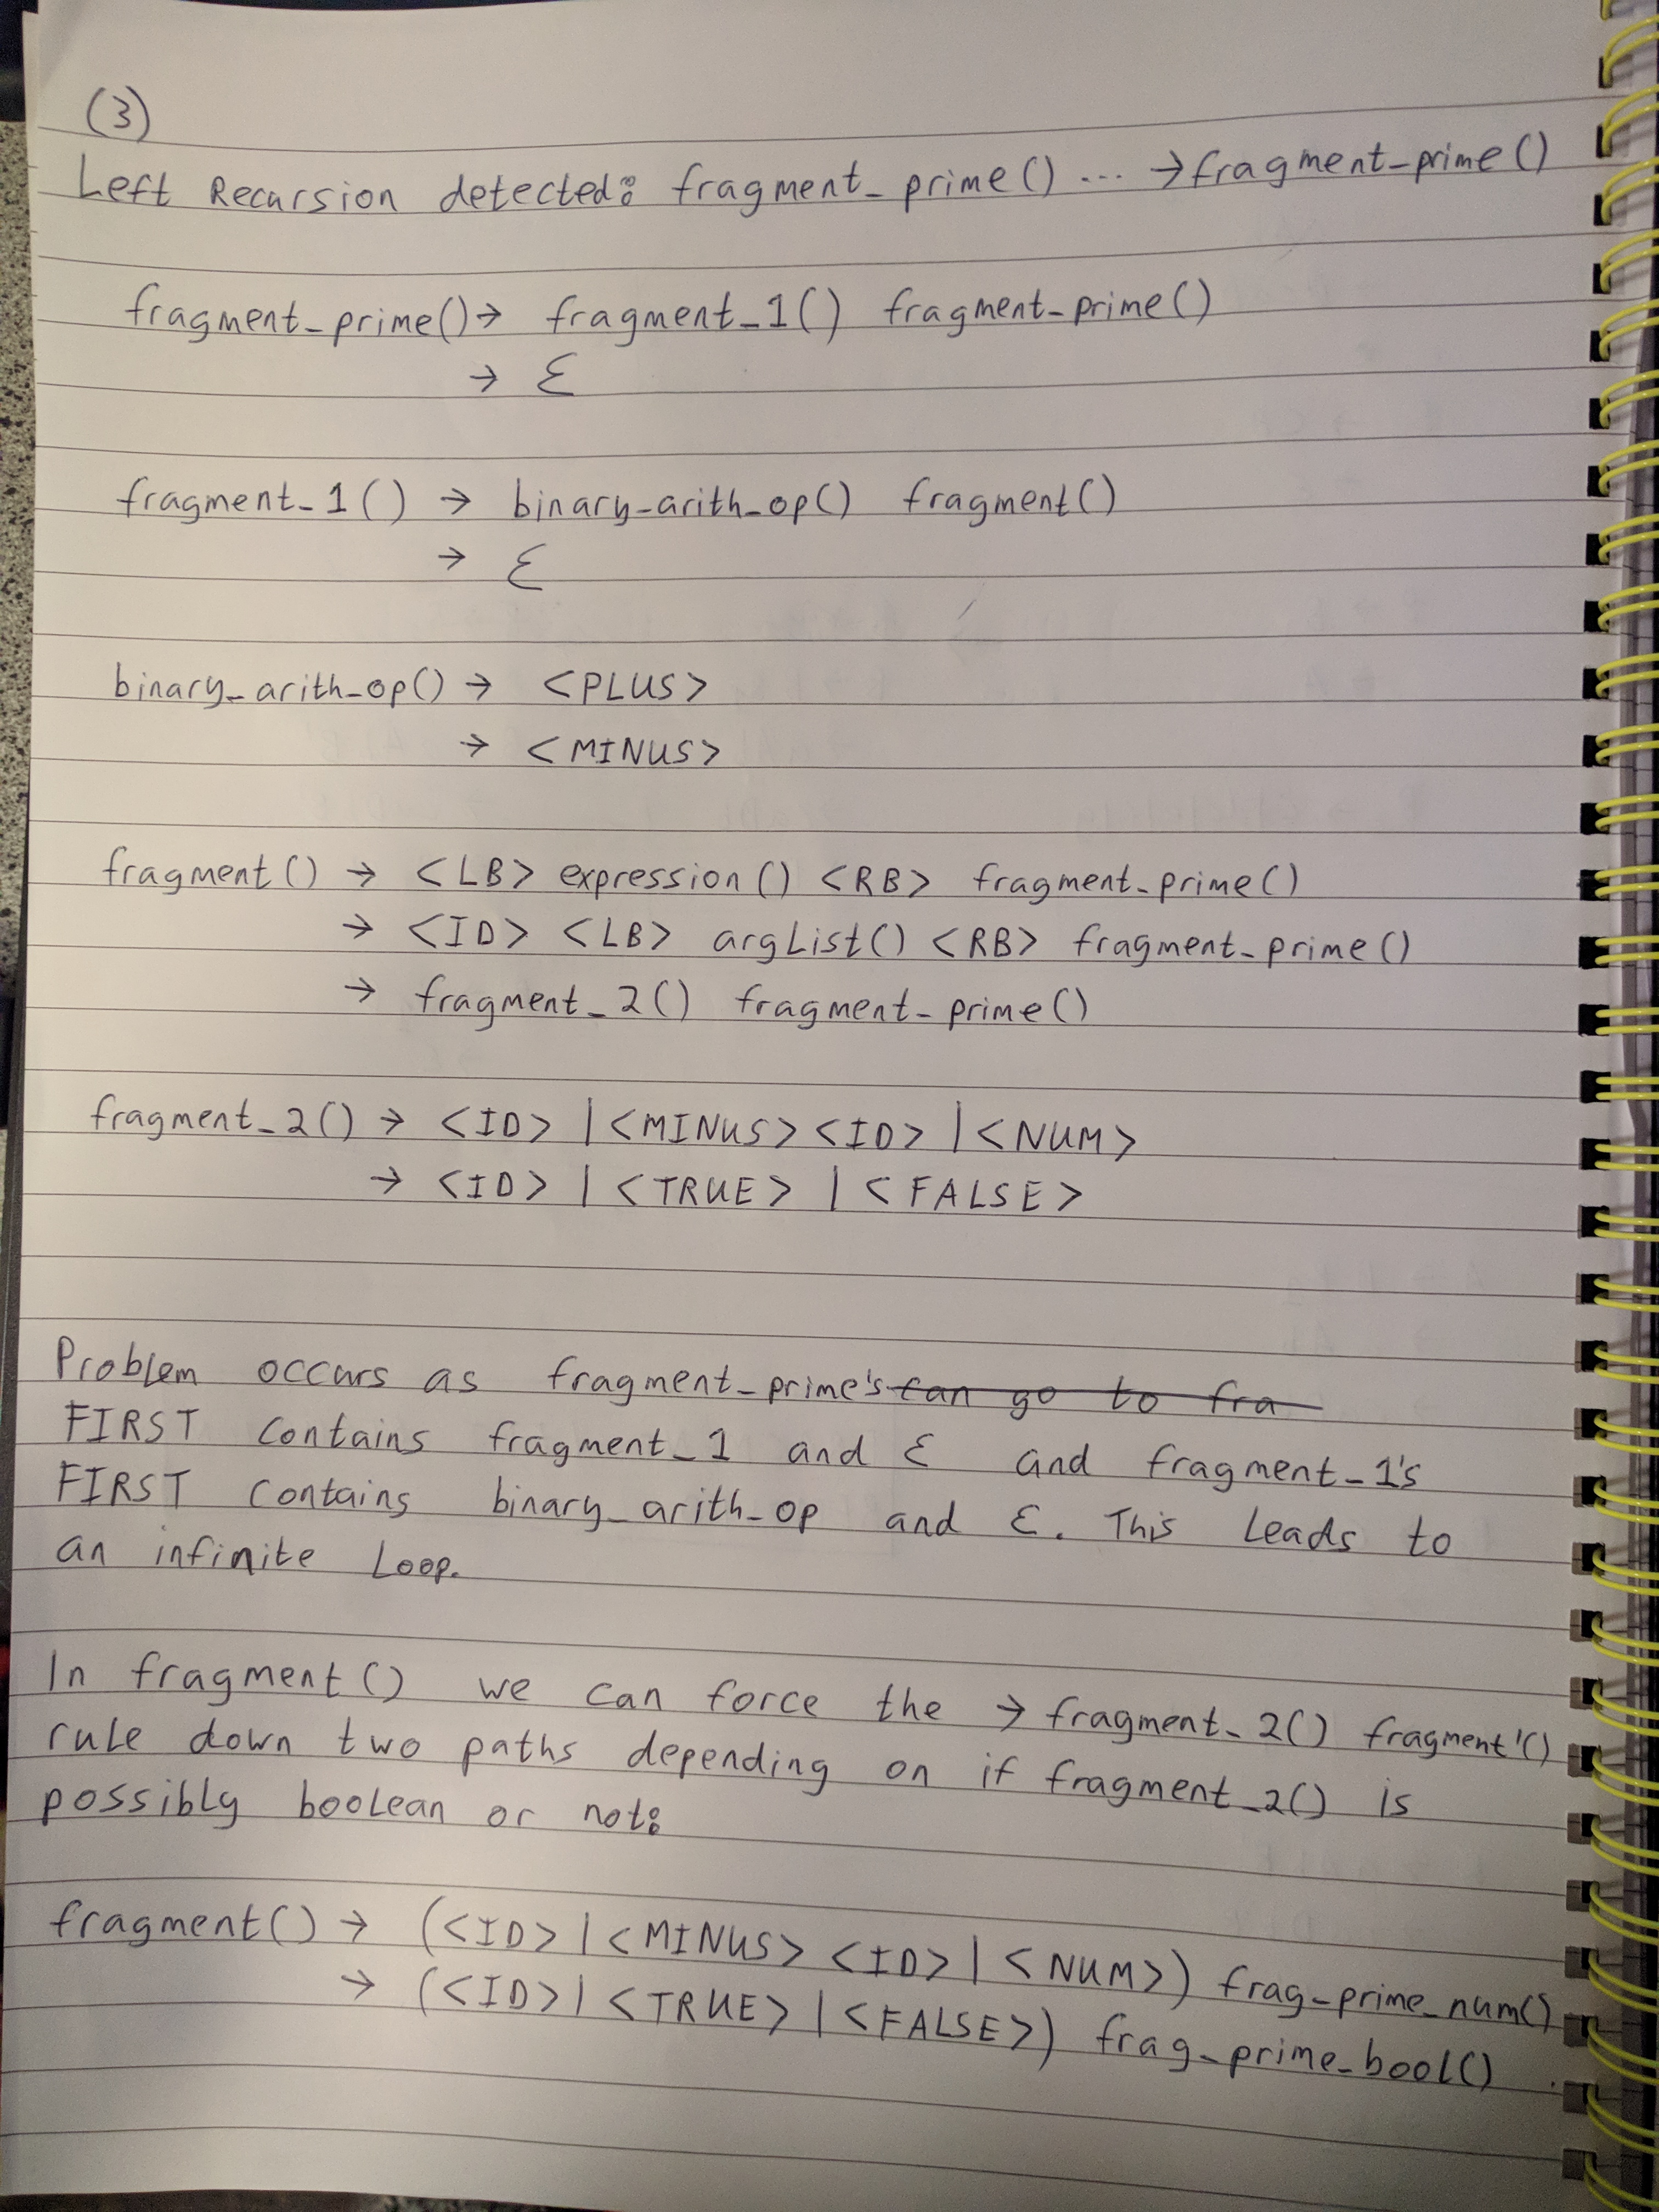 (3)
Left Recursion detected: fragment_prime() ... → fragment_prime()
fragment_prime() → fragment_1() fragment_prime()
→ ε
fragment_1() → binary_arith_op() fragment()
→ ε
binary_arith_op() → <PLUS>
→ <MINUS>
fragment() → <LB> expression() <RB> fragment_prime()
→ <ID> <LB> argList() <RB> fragment_prime()
→ fragment_2() fragment_prime()
fragment_2() → <ID> | <MINUS> <ID> | <NUM>
→ <ID> | <TRUE> | <FALSE>
Problem occurs as fragment_prime's can go to fra
FIRST contains fragment_1 and ε and fragment_1's
FIRST contains binary_arith_op and ε. This leads to
an infinite loop.
In fragment() we can force the → fragment_2() fragment'()
rule down two paths depending on if fragment_2() is
possibly boolean or not:
fragment() → (<ID> | <MINUS> <ID> | <NUM>) frag_prime_num()
→ (<ID> | <TRUE> | <FALSE>) frag_prime_bool()